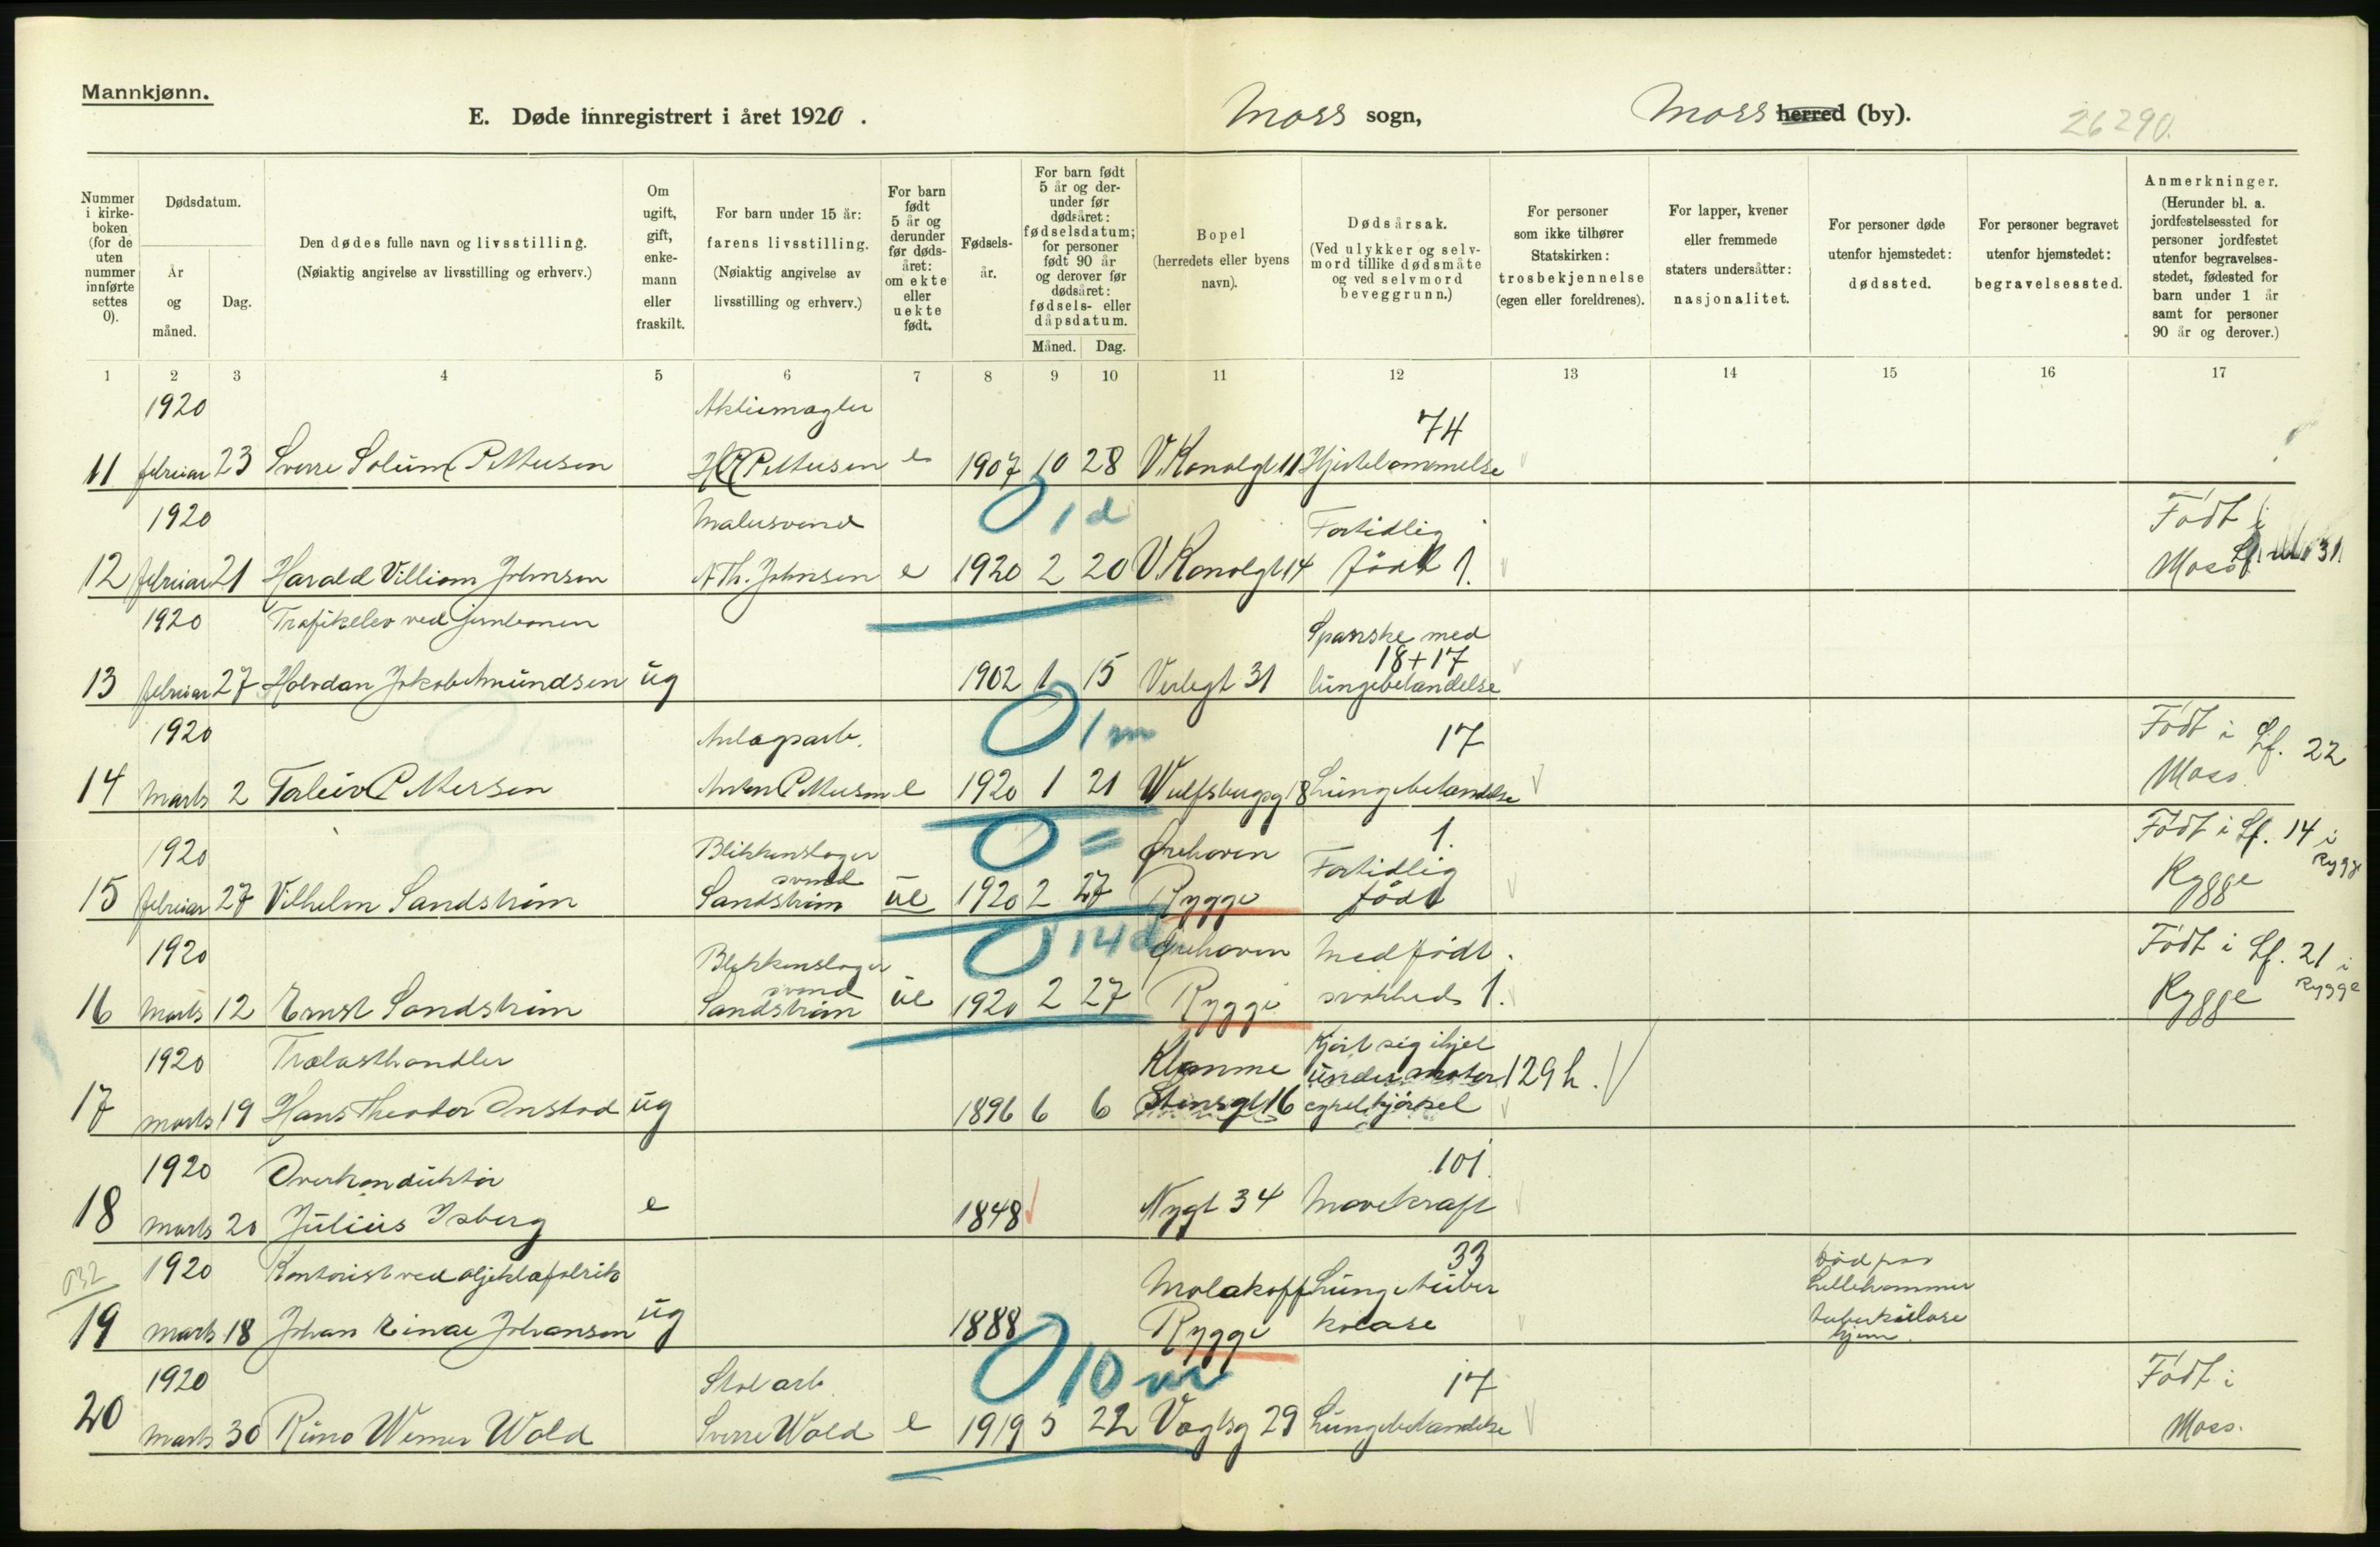 Mannkjønn.
E. Døde innregistrert i året 1920 .
Moss sogn,
Moss herred (by).
26290.
Nummer i kirke-boken (for de uten nummer innførte settes 0).
Dødsdatum.
År og måned.
Dag.
Den dødes fulle navn og livsstilling.
(Nøiaktig angivelse av livsstilling og erhverv.)
Om ugift, gift, enke-mann eller fraskilt.
For barn under 15 år: farens livsstilling. (Nøiaktig angivelse av livsstilling og erhverv.)
For barn født 5 år og derunder før døds-året: om ekte eller uekte født.
Fødsels-år.
For barn født 5 år og der-under før dødsåret: fødselsdatum; for personer født 90 år og derover før dødsåret: fødsels- eller dåpsdatum.
Måned. Dag.
Bopel (herredets eller byens navn).
Dødsårsak. (Ved ulykker og selv-mord tillike dødsmåte og ved selvmord beveggrunn.)
For personer som ikke tilhører Statskirken: trosbekjennelse (egen eller foreldrenes).
For lapper, kvener eller fremmede staters undersåtter: nasjonalitet.
For personer døde utenfor hjemstedet: dødssted.
For personer begravet utenfor hjemstedet: begravelsessted.
Anmerkninger. (Herunder bl. a. jordfestelsessted for personer jordfestet utenfor begravelses-stedet, fødested for barn under 1 år samt for personer 90 år og derover.)
1 2 3 4 5 6 7 8 9 10 11 12 13 14 15 16 17
1920 Aktiemægler 74
11 februar 23 Sverre Solum Pettersen Pettersen e 1907 10 28 V. Kanalgt 11 Hjertelammelse
1920 Malersvend 1 d Fortidlig Født i
12 februar 21 Harald Villiam Johnsen A Th. Johnsen e 1920 2 20 V. Kanalgt 14 født 1. Moss Lf. 31
1920 Trafikelev ved jernbanen Spanske med
18+17
13 februar 27 Halvdan Jakob Amundsen ug 1902 1 15 Verlegt 31 lungebetændelse
1920 Anlægsarb. 1 m 17 Født i Lf. 22
14 Marts 2 Torleiv Pettersen Anton Pettersen e 1920 1 21 Wulfsbergsg 18 Lungebetændelse Moss
1920 Blikkenslager = Ørehaven 1. Fortidlig Født i Lf. 14 i
15 februar 27 Vilhelm Sandstrøm svend Sandstrøm ue 1920 2 27 Rygge født Rygge Rygge
1920 Blikkenslager 14 d Ørehaven Medfødt Født i Lf. 21 i
16 Marts 12 Ernst Sandstrøm svend Sandstrøm ue 1920 2 27 Rygge svakhed 1. Rygge Rygge
1920 Trælasthandler Klomme Kjørt sig ihjel
under motor 129 h.
17 marts 19 Hans Theodor Onstad ug 1896 6 6 Stensgt 16 cykelkjørsel
1920 Overkonduktør 101.
18 Marts 20 Julius Isberg e 1848 Nygt 34 Mavekræft
032 1920 Kontorist ved 33 Død paa
Molakoff Lungetuber Lillehammer
19 marts 18 Johan Einar Johansen ug 1888 Rygge kolose tuberkulose
hjem.
1920 10 m 17 Født i
20 Marts 30 Runo Werner Wold Sverre Wold e 1919 5 22 Vogtsg 29 Lungebetændelse Moss.